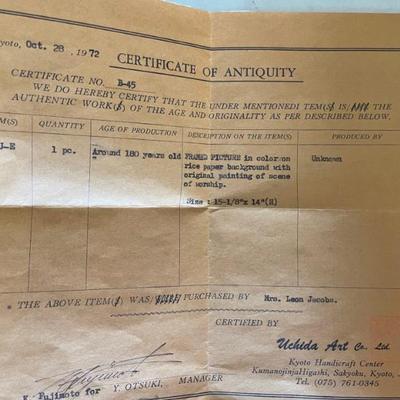 yoto, Oct. 28 , 19 72
CERTIFICATE OF ANTIQUITY
CERTIFICATE NO. B-45
WE DO HEREBY CERTIFY THAT THE UNDER MENTIONED ITEM(S) IS/ARE THE
AUTHENTIC WORK(S) OF THE AGE AND ORIGINALITY AS PER DESCRIBED BELOW.
M(S) QUANTITY AGE OF PRODUCTION DESCRIPTION ON THE ITEM(S) PRODUCED BY
J-E 1 pc. Around 180 years old FRAMED PICTURE in color on Unknown
rice paper background with
original painting of scene
of worship.
Size : 15-1/8"x 14"(H)
* THE ABOVE ITEM(S) WAS/WERE PURCHASED BY Mrs. Leon Jacobs.
CERTIFIED BY
Uchida Art Co. Ltd.
Kyoto Handicraft Center
KumanojinjaHigashi, Sakyoku, Kyoto, J
Tel. (075) 761-0345
K. Fujimoto for Y. OTSUKI, MANAGER